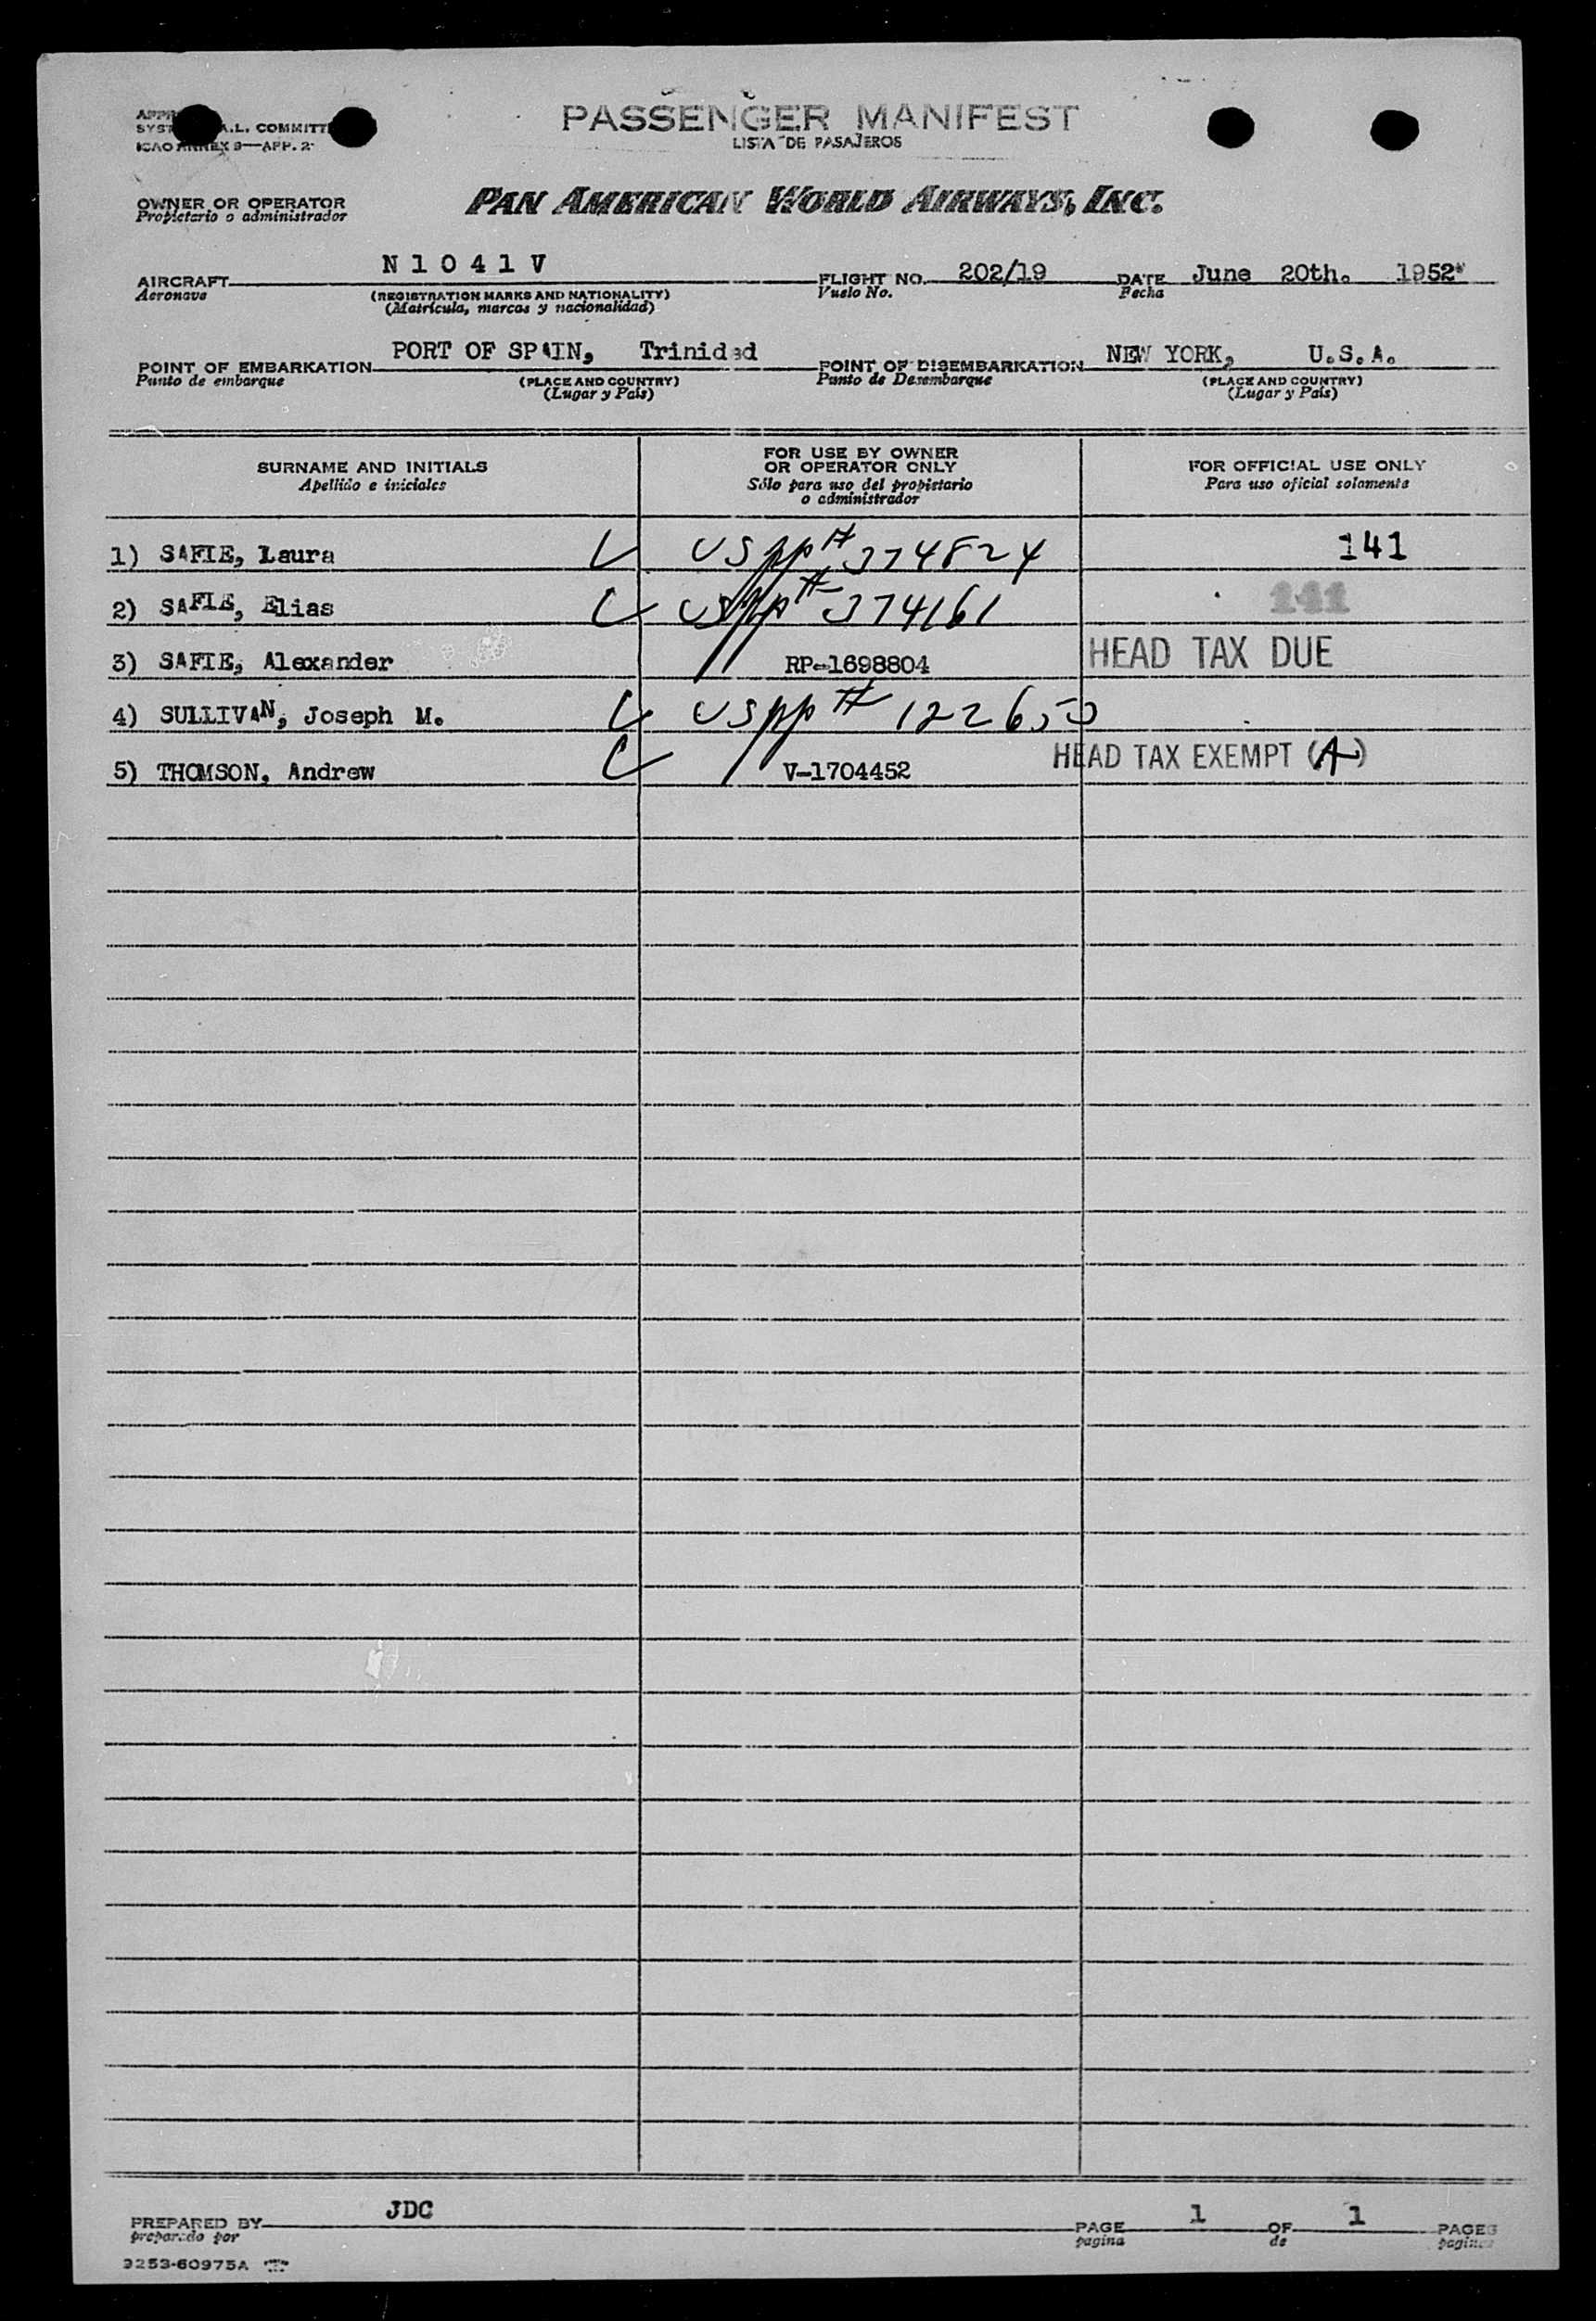 PASSENGER MANIFEST
LISTA DE PASAJEROS
A.L. COMMITT
ICAO ANNEX 9—APP. 2
OWNER OR OPERATOR
Propietario o administrador
PAN AMERICAN WORLD AIRWAYS, INC.
AIRCRAFT N 1 0 4 1 V FLIGHT NO. 202/19 DATE June 20th. 1952
Aeronave (REGISTRATION MARKS AND NATIONALITY) Vuelo No. Fecha
(Matrícula, marcas y nacionalidad)
POINT OF EMBARKATION PORT OF SPAIN, Trinidad POINT OF DISEMBARKATION NEW YORK, U.S.A.
Punto de embarque (PLACE AND COUNTRY) Punto de Desembarque (PLACE AND COUNTRY)
(Lugar y País) (Lugar y País)
SURNAME AND INITIALS
Apellido e iniciales
FOR USE BY OWNER
OR OPERATOR ONLY
Sólo para uso del propietario
o administrador
FOR OFFICIAL USE ONLY
Para uso oficial solamente
1) SAFIE, Laura US pp # 374824 141
2) SAFIE, Elias US pp # 374161 141
3) SAFIE, Alexander RP-1698804 HEAD TAX DUE
4) SULLIVAN, Joseph M. US pp # 122650
5) THOMSON, Andrew V-1704452 HEAD TAX EXEMPT (A)
PREPARED BY JDC PAGE 1 OF 1 PAGES
preparado por pagina de paginas
9253-60975A